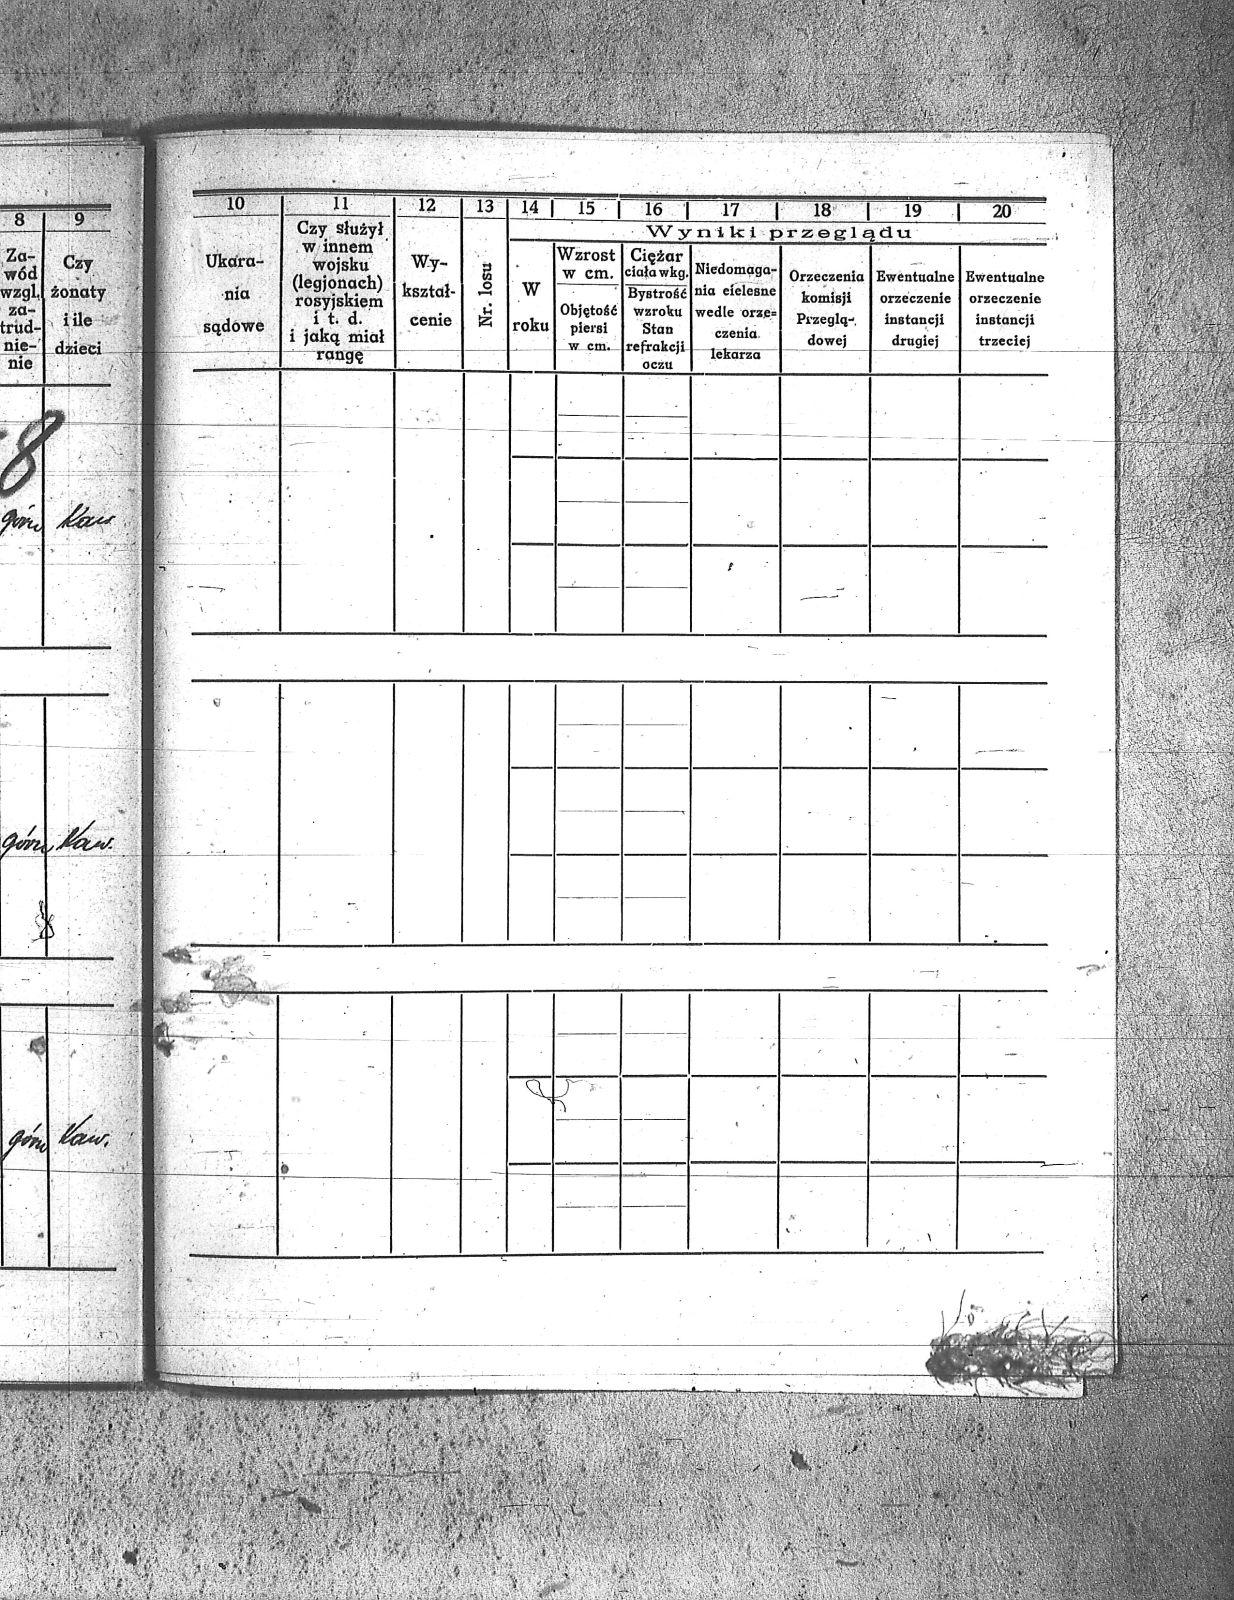 8 9
Za-
wód
wzgl.
za-
trud-
nie-
nie
Czy
żonaty
i ile
dzieci
8
górn Kaw.
górn Kaw.
górn Kaw.
10 11 12 13 14 15 16 17 18 19 20
Wyniki przeglądu
Ukara-
nia
sądowe
Czy służył
w innem
wojsku
(legjonach)
rosyjskiem
i t. d.
i jaką miał
rangę
Wy-
kształ-
cenie
Nr. losu
W
roku
Wzrost
w cm.
Objętość
piersi
w cm.
Ciężar
ciała w kg.
Bystrość
wzroku
Stan
refrakcji
oczu
Niedomaga-
nia cielesne
wedle orze=
czenia
lekarza
Orzeczenia
komisji
Przeglą-
dowej
Ewentualne
orzeczenie
instancji
drugiej
Ewentualne
orzeczenie
instancji
trzeciej